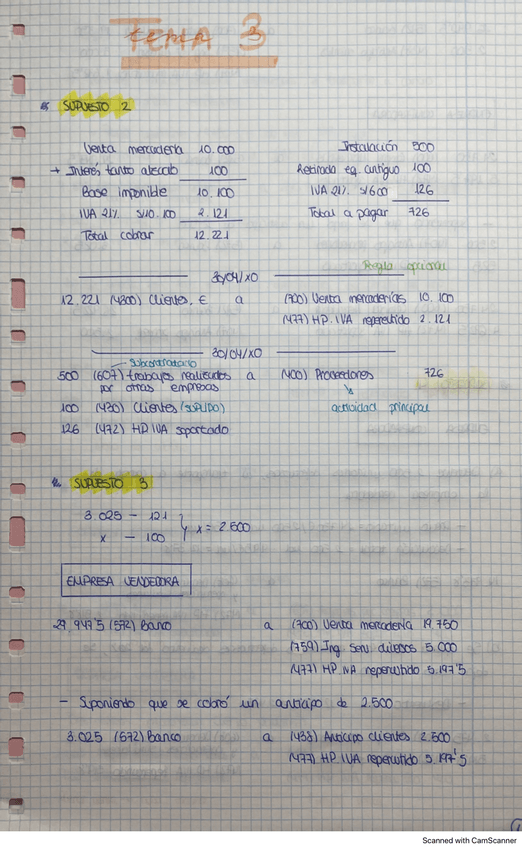 TEMA 3
SUPUESTO 2
Venta mercadería 10.000
+ Interés tanto alzado 100
Base imponible 10.100
IVA 21% s/10.100 2.121
Total cobrar 12.221
Instalación 500
Retirada eq. antiguo 100
IVA 21% s/600 126
Total a pagar 726
Regla opcional
30/04/X0
12.221 (4300) Clientes, € a (700) Venta mercaderías 10.100
(477) HP. IVA repercutido 2.121
30/04/X0
Subcontratario
500 (607) trabajos realizados a (400) Proveedores 726
por otras empresas
actividad principal
100 (430) Clientes (SUPLIDO)
126 (472) HP IVA soportado
SUPUESTO 3
3.025 - 121
x - 100
x = 2500
EMPRESA VENDEDORA
29,947'5 (572) Banco a (700) Venta mercadería 19.750
(759) Ing. Serv. diversos 5.000
(477) HP IVA repercutido 5.197'5
- Suponiendo que se cobró un anticipo de 2.500
3.025 (572) Banco a (438) Anticipo clientes 2.500
(477) HP IVA repercutido 5.197'5
Scanned with CamScanner